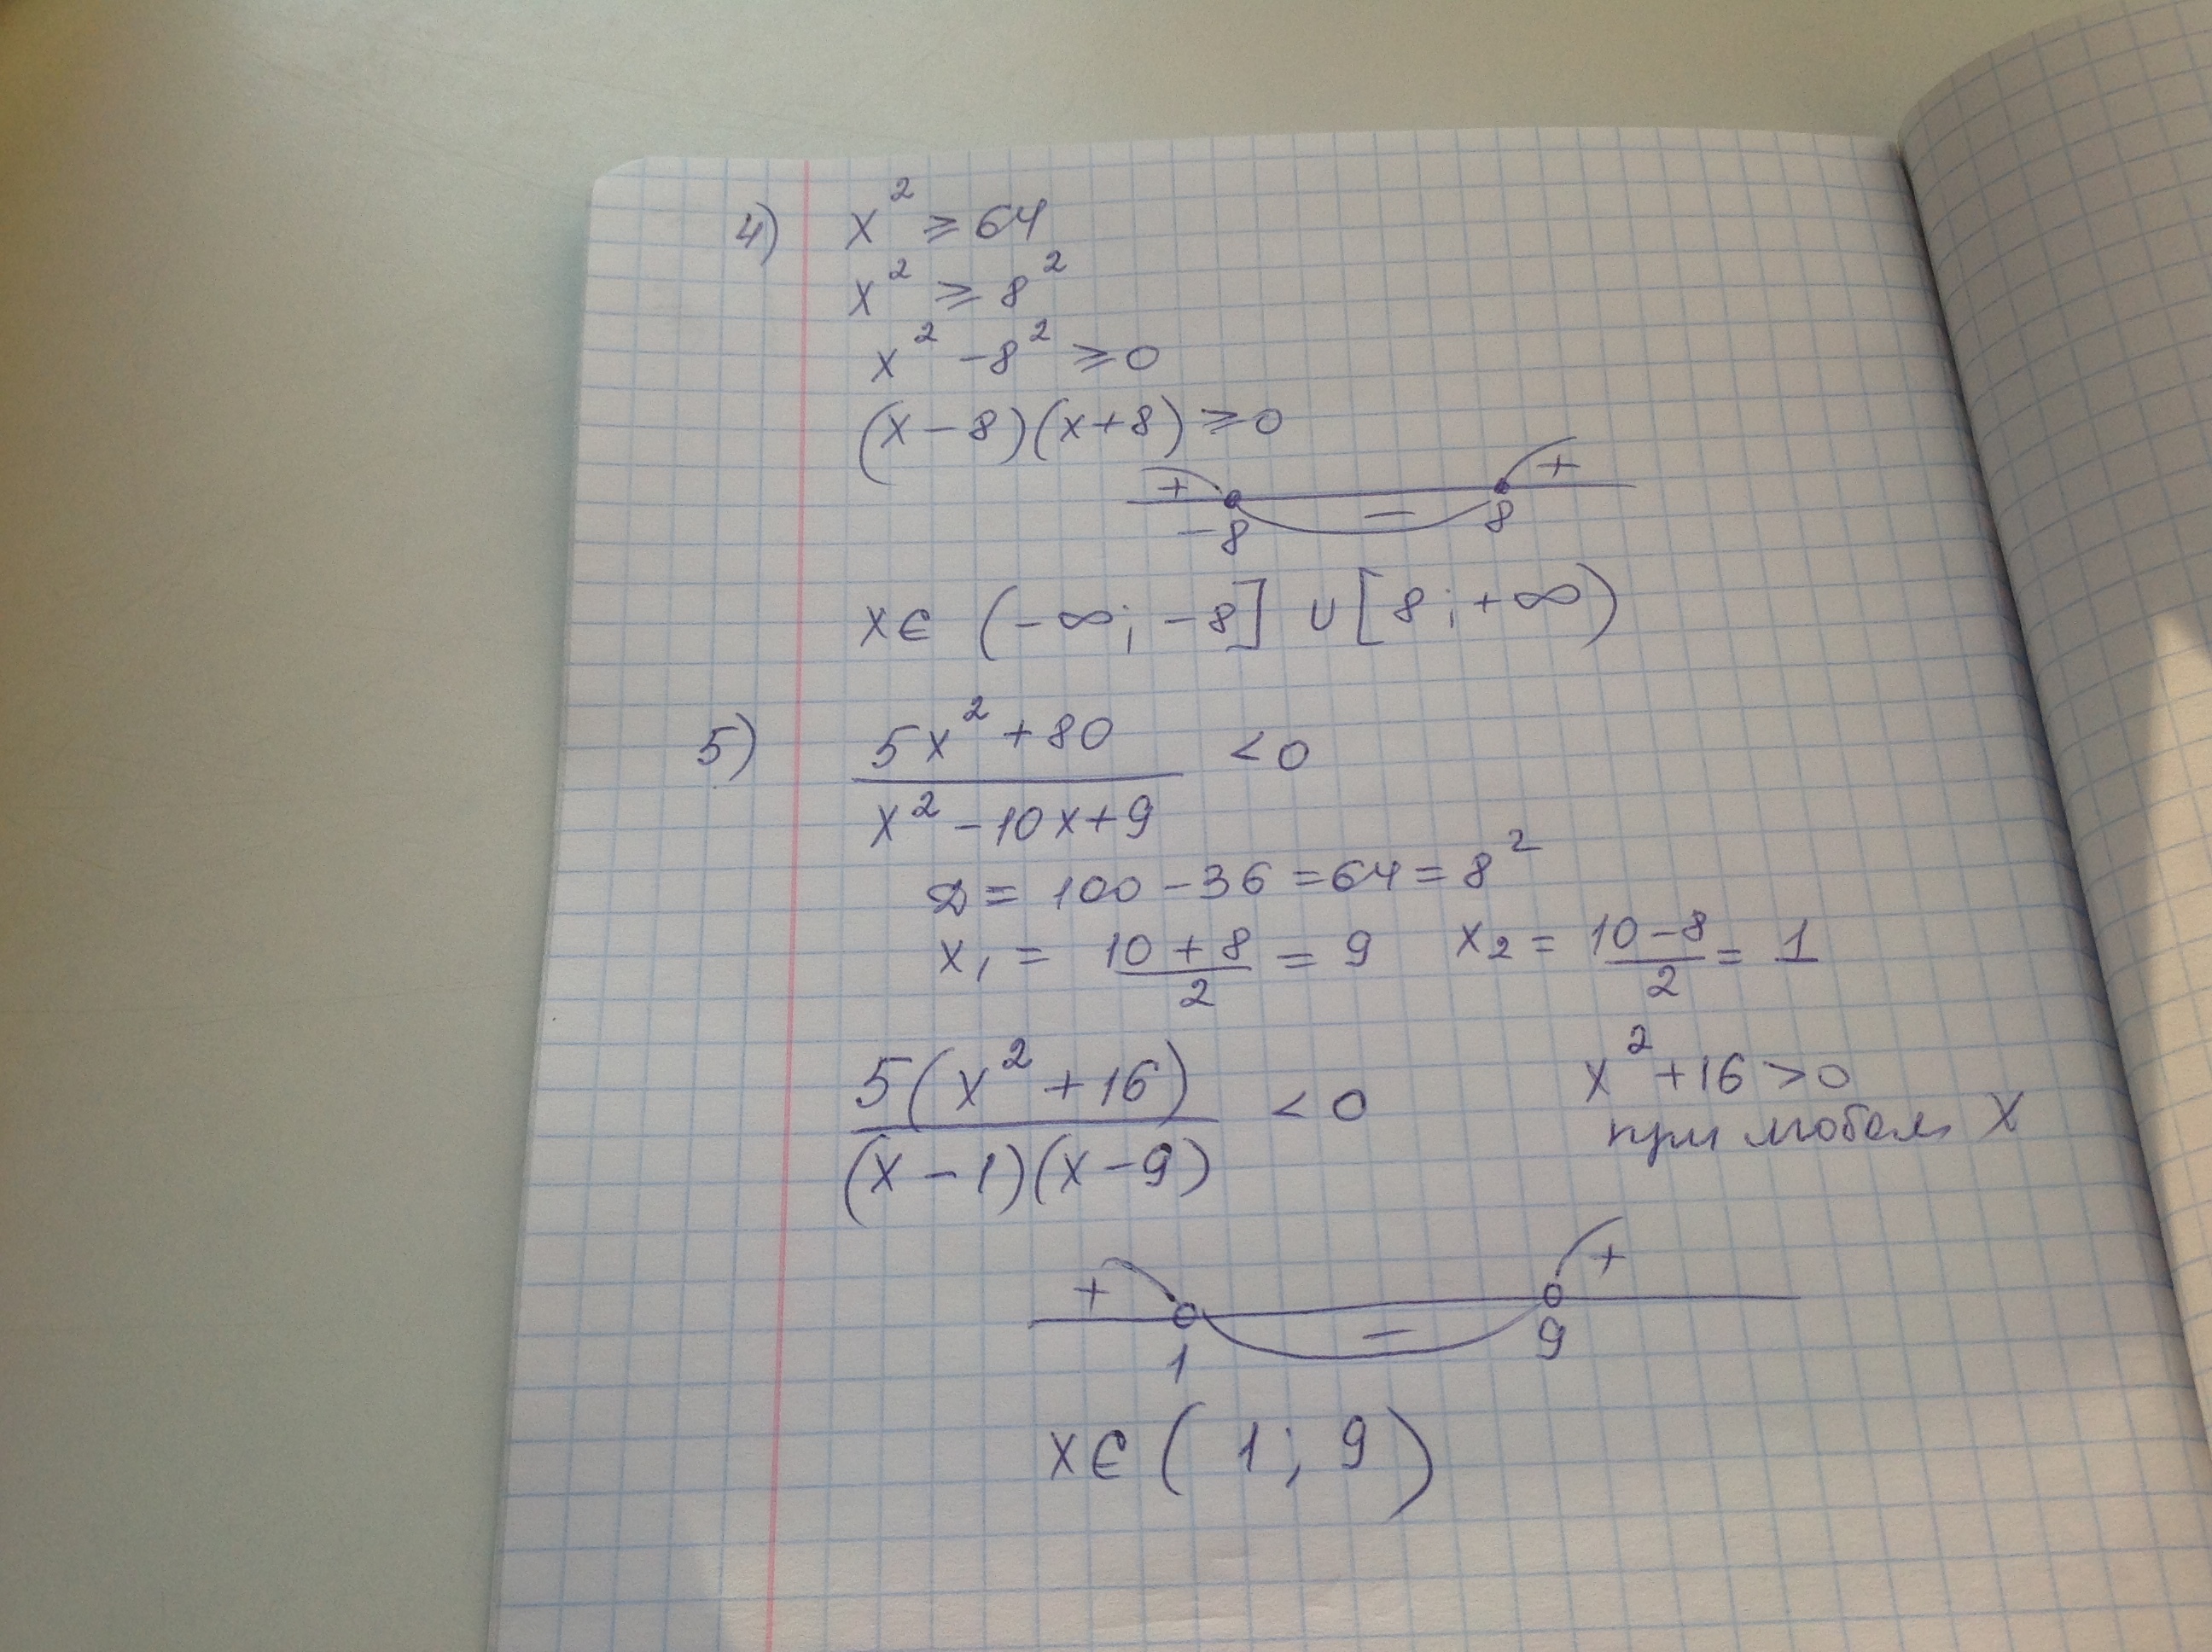 4) x² ≥ 64
x² ≥ 8²
x² - 8² ≥ 0
(x - 8)(x + 8) ≥ 0
+ - +
-8 8
x ∈ (-∞; -8] ∪ [8; +∞)
5) (5x² + 80)/(x² - 10x + 9) < 0
D = 100 - 36 = 64 = 8²
x₁ = (10 + 8)/2 = 9 x₂ = (10 - 8)/2 = 1
5(x² + 16)/((x - 1)(x - 9)) < 0
x² + 16 > 0
при любом x
+ - +
1 9
x ∈ (1; 9)